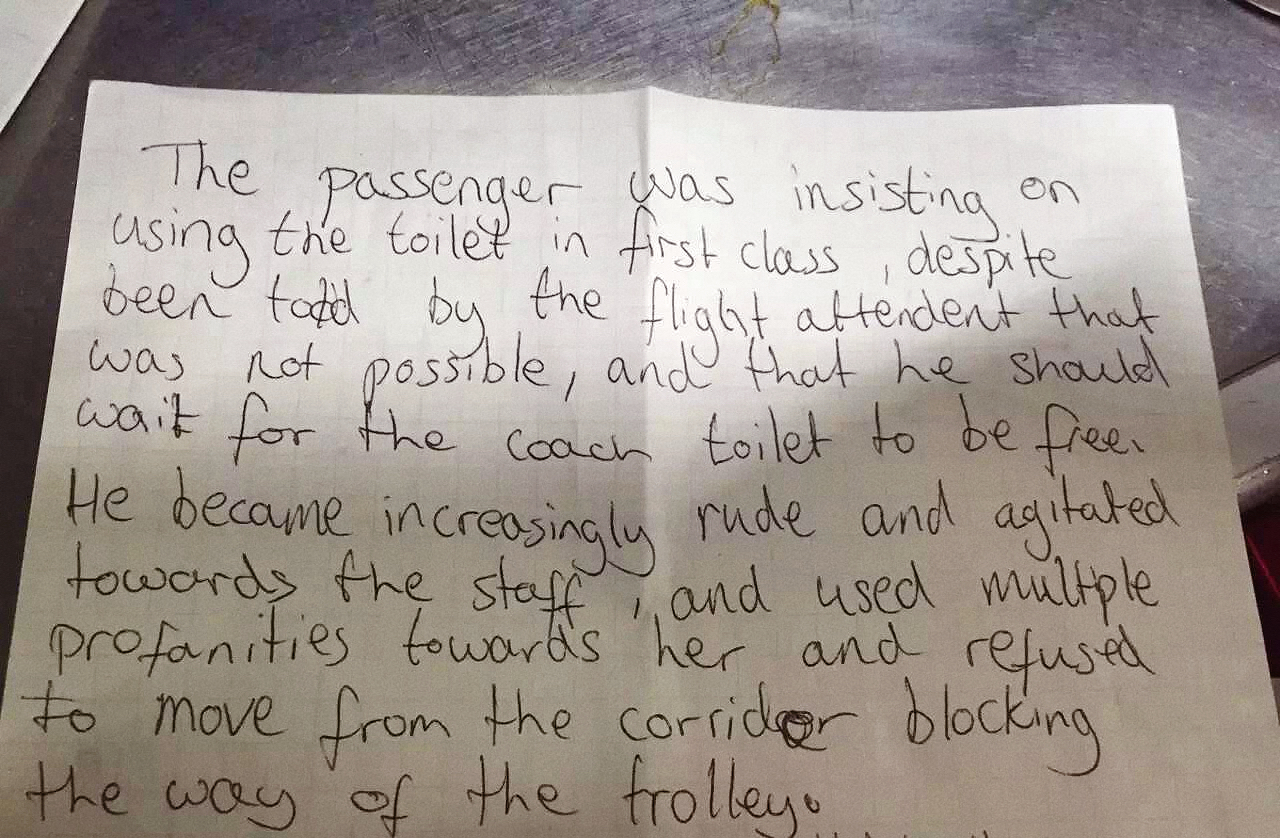 The passenger was insisting on
using the toilet in first class, despite
been told by the flight attendent that
was not possible, and that he should
wait for the coach toilet to be free.
He became increasingly rude and agitated
towards the staff, and used multiple
profanities towards her and refused
to move from the corridor blocking
the way of the trolley.